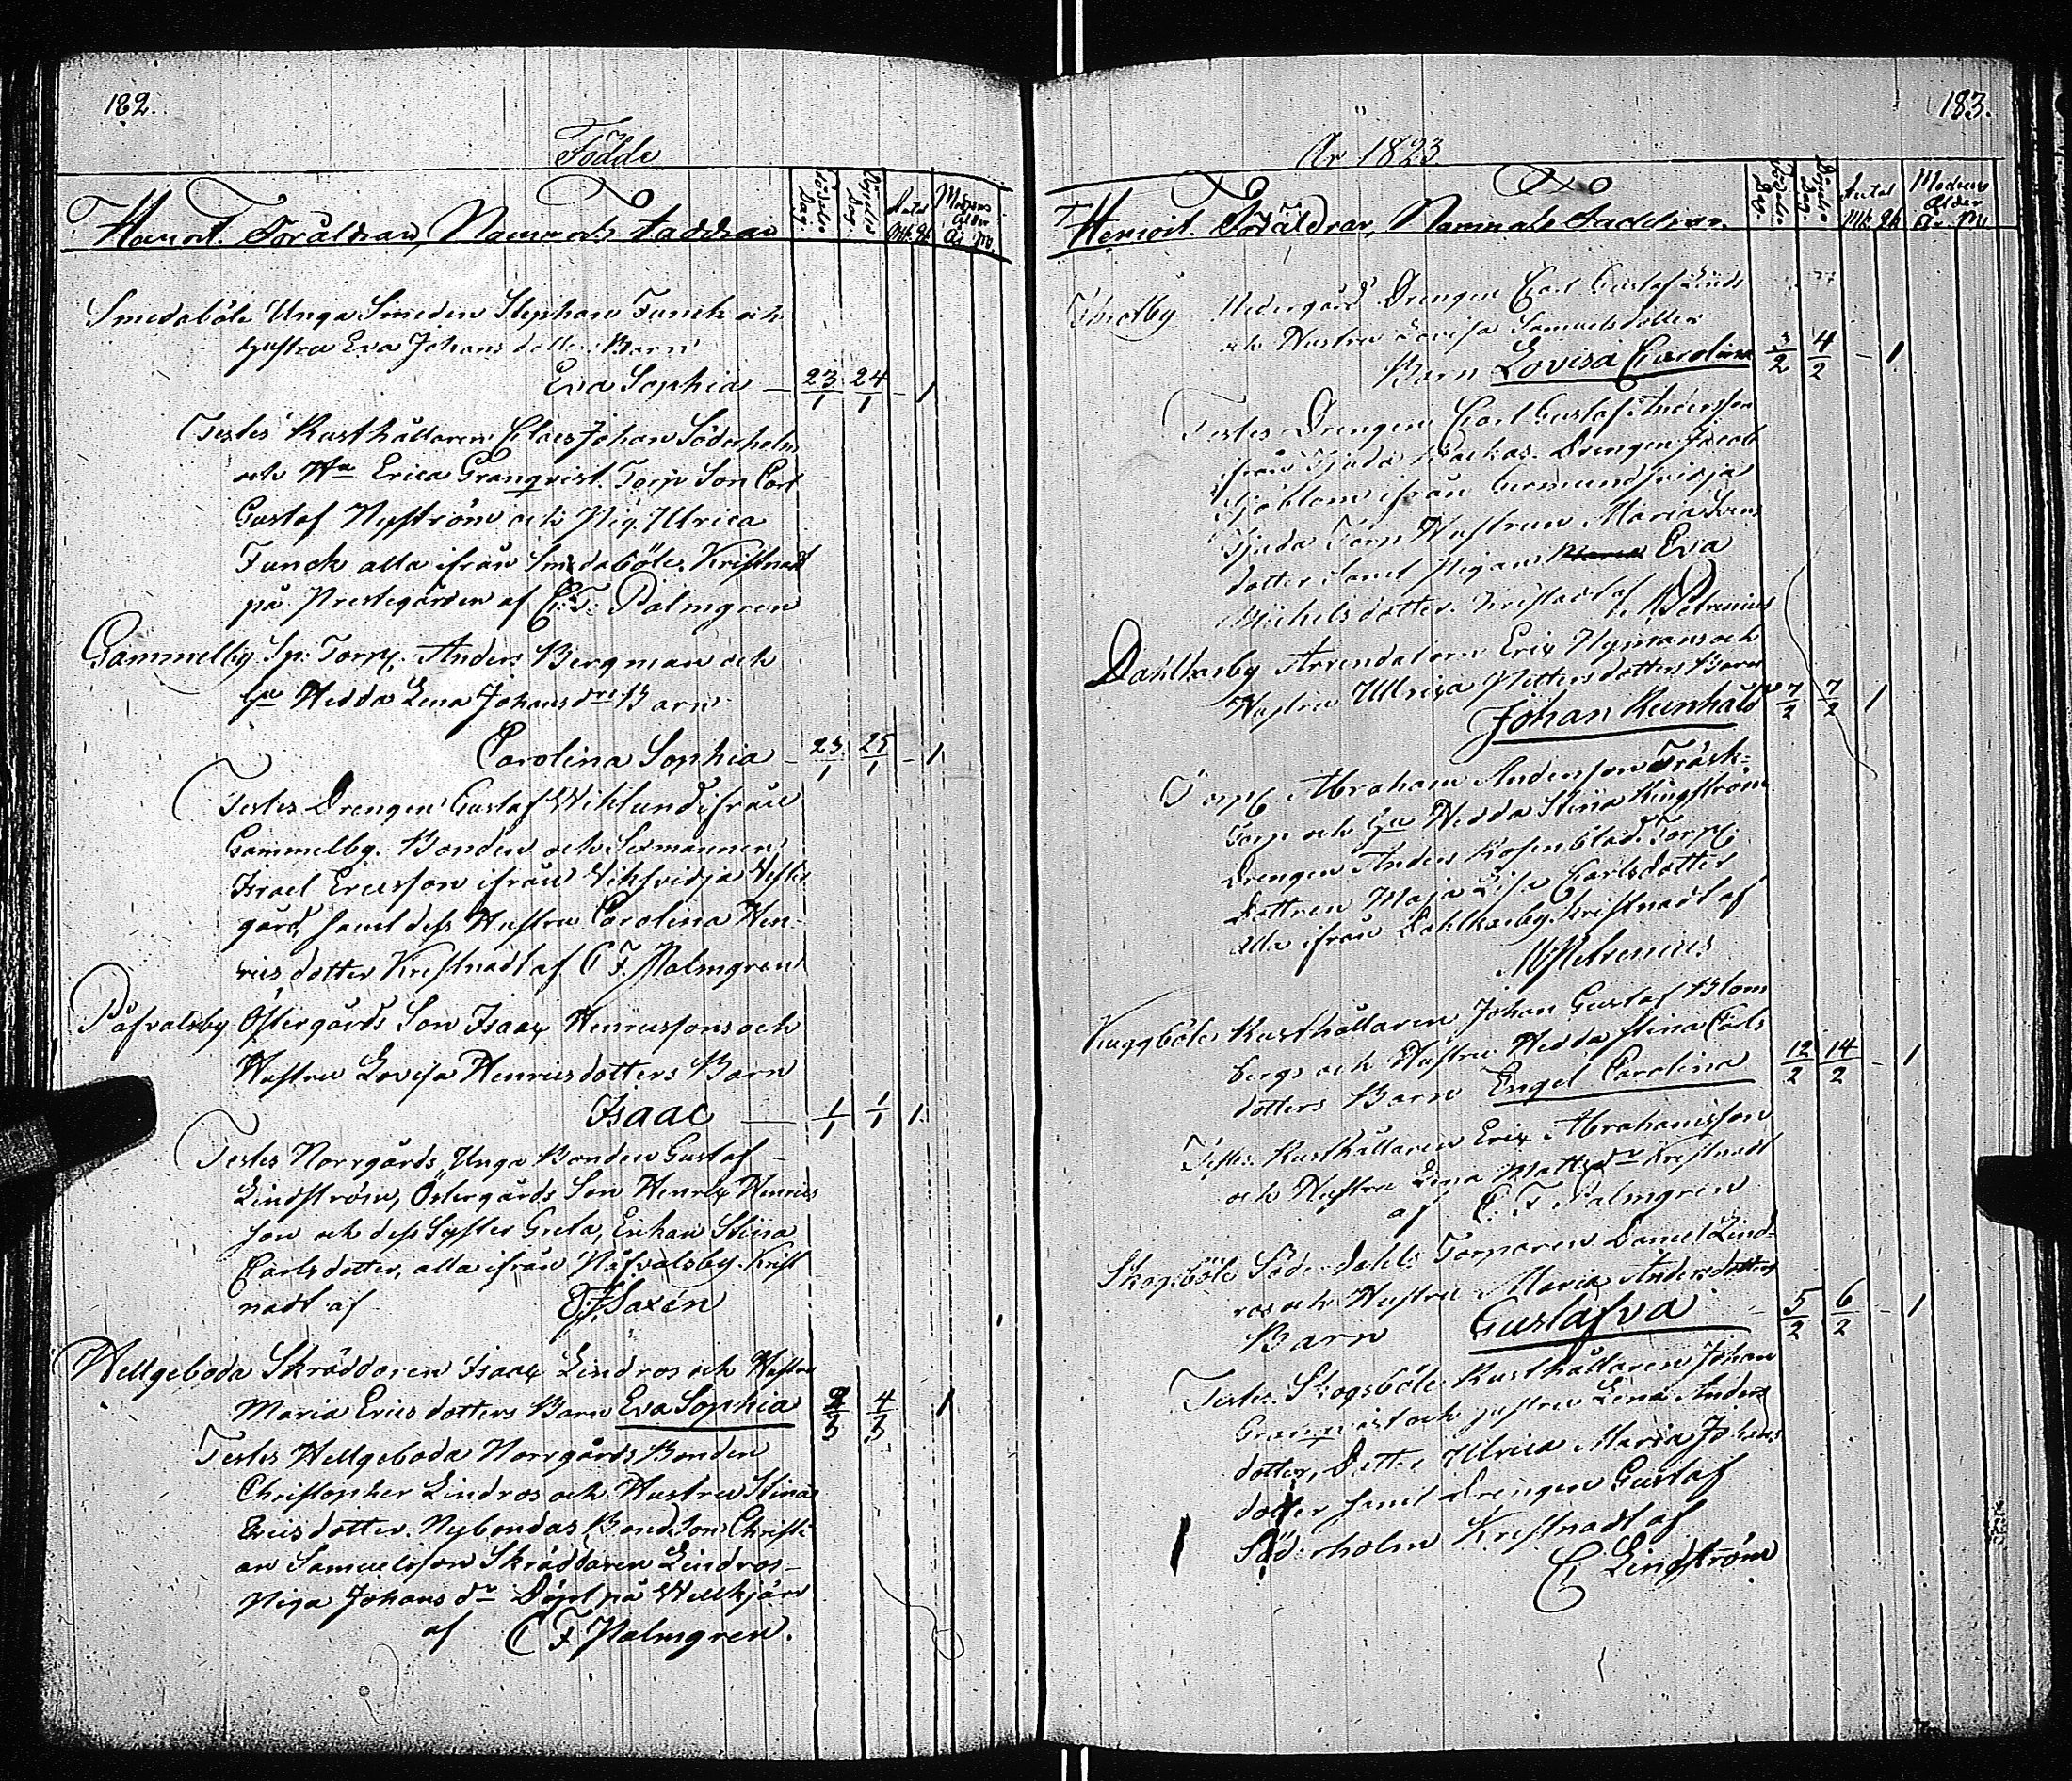 182.
Födde
Hemort. Föräldrar, Namn och Faddrar
Födelse Dag.
Döpelse Dag.
Antal
Mk. Qk.
Modrens Ålder
År. M.
Smedaböle Unga Smeden Stephan Funck och
Hustru Eva Johansdotters Barn
Eva Sophia — 23/1 24/1 - 1
Testes Rusthållaren Claes Johan Söderholm
och Hu Erica Granqvist. Torp Son Carl
Gustaf Nyström och Pig. Ulrica
Funck alla ifrån Smedaböle. Kristnadt
på Prestegården af C. F. Palmgren
Gammelby Sp. Torp. Anders Bergman och
Hu Hedda Lena Johansdrs Barn
Carolina Sophia - 23/1 25/1 - 1
Testes Drengen Gustaf Wiklund ifrån
Gammelby. Bonden och Sexmannen
Israel Ericsson ifrån Vikfvidja Vester
gård, samt dess Hustru Carolina Hen-
rics dotter Kristnadt af C F Palmgren
Påfvalsby Östergårds Son Isaac Henricssons och
Hustru Lovisa Henricsdotters Barn
Isaac — 1/1 1/1 1.
Testes Norrgårds Unga Bonden Gustaf
Lindström, Östergårds Son Henric Henrics
son och dess Syster Greta, Enkan Stina
Carlsdotter, alla ifrån Påfvalsby. Krist
nadt af Saxén
Hellgeboda Skräddaren Isaac Lindros och Hustru
Maria Erics dotters Barn Eva Sophia 4/3 1
Testes Hellgeboda Norrgårds Bonden
Christopher Lindros och Hustru Stina
Ericsdotter. Nybondas Bond Son Christi
an Samuelsson Skräddaren Lindros-
Piga Johans dr Döpt på
af C F Palmgren.
183.
År 1823
Hemort. Föräldrar, Namn och Faddrar.
Födelse Dag
Döpelse Dag
Antal
Mk. Qk
Modrens Ålder
År. M
Nedergård Drengen Carl Gustaf Linds
och Hustru Lovisa Samuelsdotters
Barn Lovisa Carolina 3/2 4/2 - 1
Testes Drengen Carl Gustaf Andersson
ifrån Tjuda Drengen Jacob
Sjöblom ifrån
Tjuda Torp. Hustrun Maria
dotter samt Pigan Eva
Michelsdotter. Kristnadt af M Petrenius
Dahlkarby Arrendatorn Eric Nymans och
Hustru Ulrica Pettersdotters Barn
Johan Reinhold 7/2 7/2 1
Torp. Abraham Andersson Träsk-
Torp och Hu Hedda Stina Ringström
Drengen Anders Rosenblad. Torp.
Dottren Maja Lisa Carlsdotter
alla ifrån Dahlkarby. Kristnadt af
M Petrenius
Knaggböle Rusthållaren Johan Gustaf Blom
bergs och Hustru Hedda Stina Carls
dotters Barn Engel Carolina 12/2 14/2 - 1
Testes. Rusthållaren Eric Abrahamsson
och Hustru Lena Mattsdr Kristnadt
af C. F Palmgren
Skogsböle Söderdahls Torparen Daniel Lind-
ros och Hustru Maria Andersdotters
Barn Gustafva - 5/2 6/2 - 1
Testes. Skogsböle Rusthållaren Johan
Granqvist och hustru Lena Anders
dotter, Dotter Ulrica Maria Johans
dotter samt Drengen Gustaf
Söderholm Kristnadt af
C Lindström